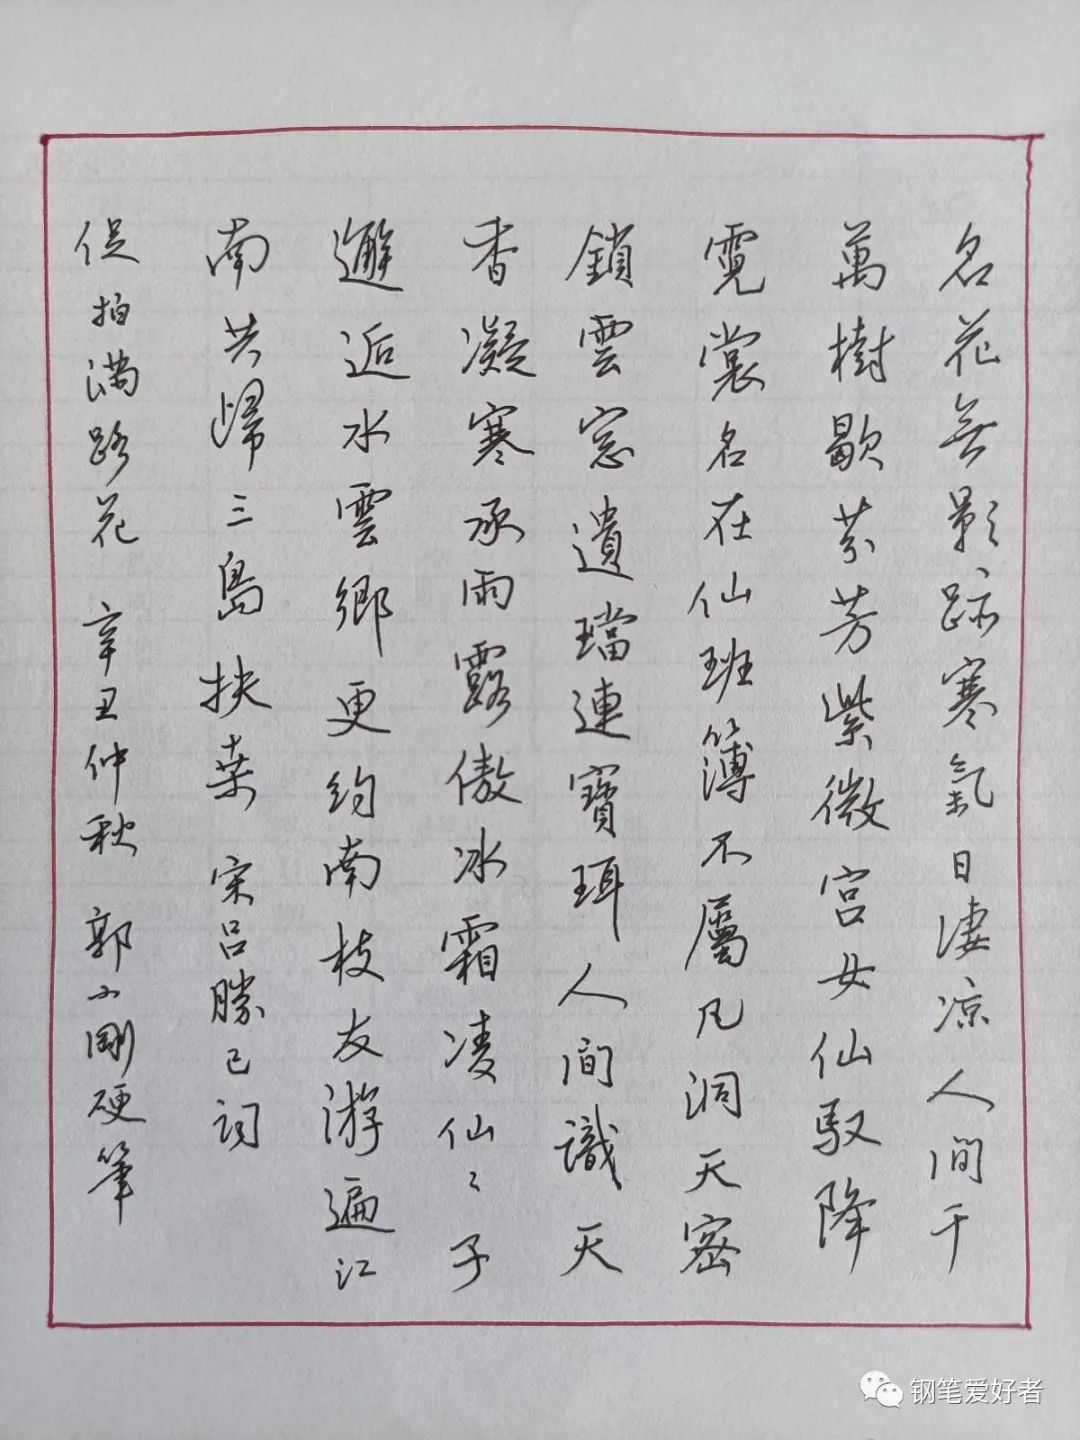 名花無影跡寒氣日淒凉人間千
萬樹歇芬芳紫微宮女仙馭降
霓裳名在仙班簿不屬凡洞天密
鎖雲窓遺璫連寶珥人間識天
香凝寒承雨露傲冰霜凌仙〻子
邂逅水雲鄉更約南枝友游遍江
南共歸三島扶桒宋吕勝己詞
促拍滿路花辛丑仲秋郭小剛硬筆
钢笔爱好者